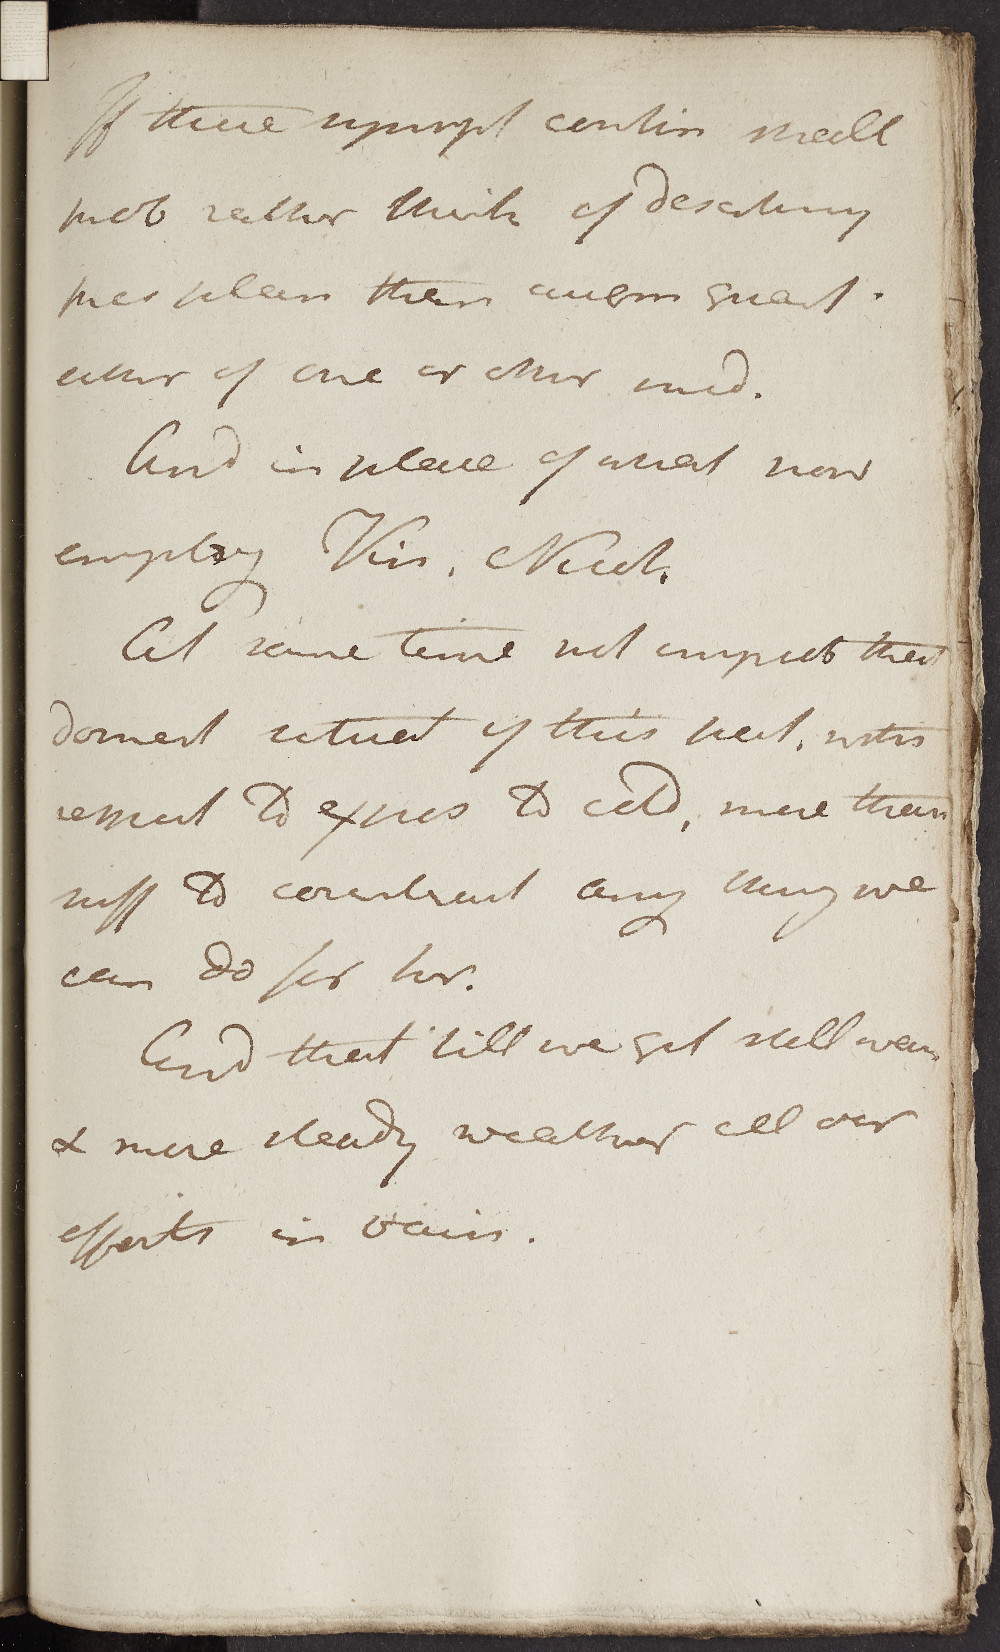 If these sympt contin shall
prob rather think of deserting
pres plan than augm quant.
either of one or other med.
And in place of what now
employ Vin. Nicot.
At same time not improb that
domest situat of this pat. with
respect to expos to cold, more than
suff to counteract any thing we
can do for her.
And that till we get still warm
& more steady weather all our
efforts in vain.